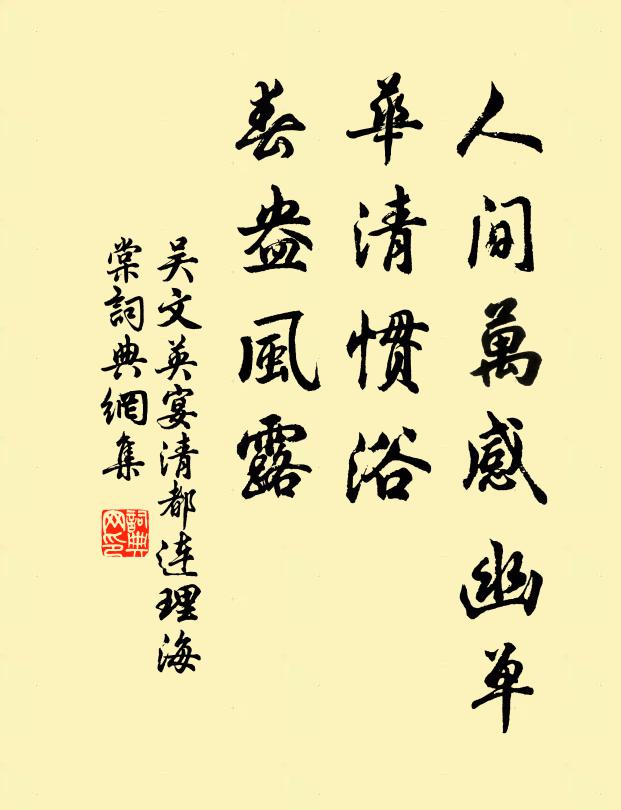 人间萬感幽单
華清惯浴
春盎風露
吴文英宴清都连理海
棠詞典網集
詞典
网印